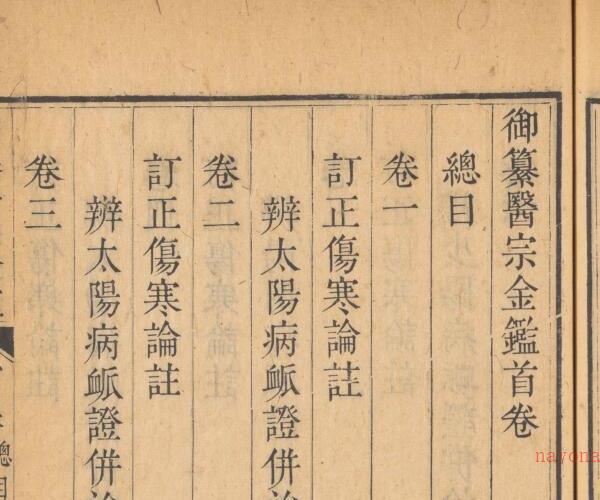 御纂醫宗金鑑首卷
總目
卷一
訂正傷寒論註
辨太陽病䘑證併
卷二
訂正傷寒論註
辨太陽病䘑證併
卷三
總目
nayona